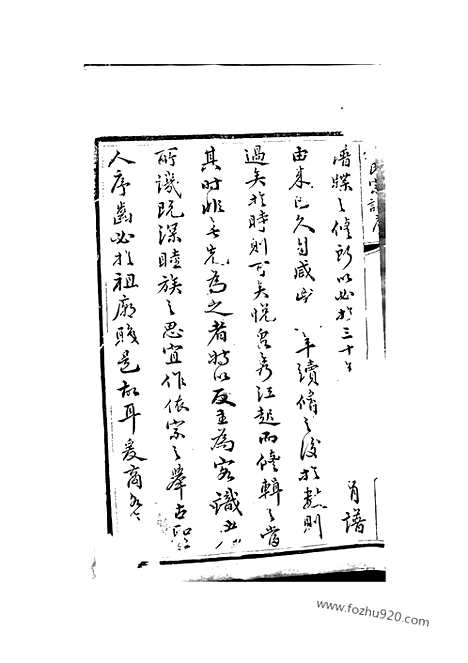 氏宗譜序
譜牒之修所以必於三十年
由來已久自咸 年續脩之後於數則
過矣於時則可矣悅 秀江起而修輯之當
其時非無先為之者特以反主為客識
所譏既深睦族之思宜作依宗之舉古聖
人序齒必於祖廟職是故耳爰商
譜
www.fozhu920.com